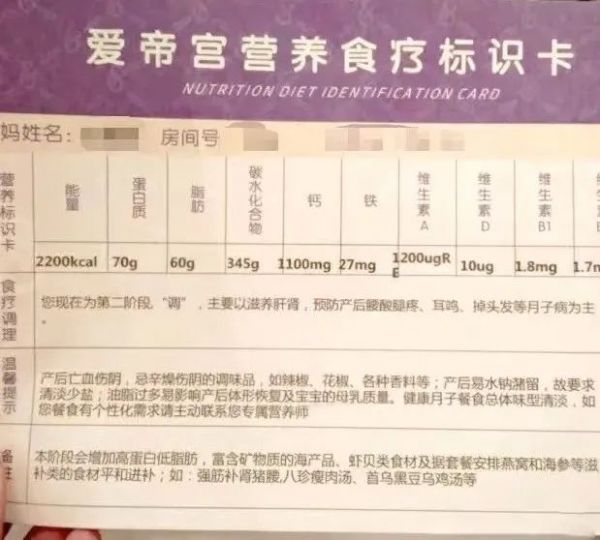 爱帝宫营养食疗标识卡
NUTRITION DIET IDENTIFICATION CARD
妈姓名: 房间号
营养标识卡 能量 蛋白质 脂肪 碳水化合物 钙 铁 维生素A 维生素D 维生素B1 维生素
2200kcal 70g 60g 345g 1100mg 27mg 1200ugRE 10ug 1.8mg 1.7m
食疗调理
您现在为第二阶段,“调”,主要以滋养肝肾,预防产后腰酸腿疼、耳鸣、掉头发等月子病为主
。
温馨提示
产后亡血伤阴,忌辛燥伤阴的调味品,如辣椒、花椒、各种香料等;产后易水钠潴留,故要求
清淡少盐;油脂过多易影响产后体形恢复及宝宝的母乳质量。健康月子餐食总体味型清淡,如
您餐食有个性化需求请主动联系您专属营养师
备注
本阶段会增加高蛋白低脂肪,富含矿物质的海产品、虾贝类食材及据套餐安排燕窝和海参等滋
补类的食材平和进补;如:强筋补肾猪腰,八珍瘦肉汤、首乌黑豆乌鸡汤等